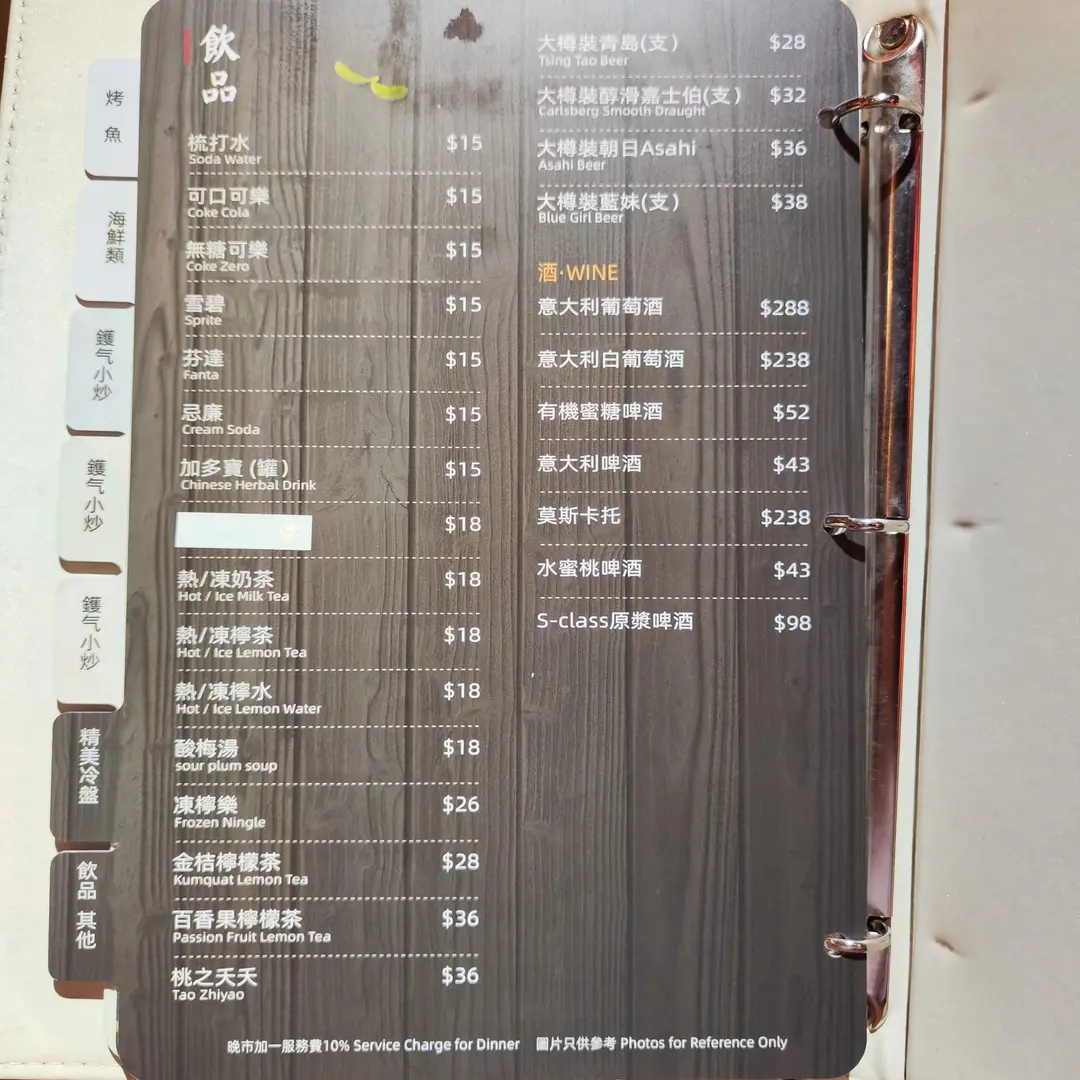 烤魚
海鮮類
鑊气小炒
鑊气小炒
鑊气小炒
精美冷盤
飲品 其他
飲品
梳打水 $15
Soda Water
可口可樂 $15
Coke Cola
無糖可樂 $15
Coke Zero
雪碧 $15
Sprite
芬達 $15
Fanta
忌廉 $15
Cream Soda
加多寶 (罐) $15
Chinese Herbal Drink
$18
熱/凍奶茶 $18
Hot / Ice Milk Tea
熱/凍檸茶 $18
Hot / Ice Lemon Tea
熱/凍檸水 $18
Hot / Ice Lemon Water
酸梅湯 $18
sour plum soup
凍檸樂 $26
Frozen Ningle
金桔檸檬茶 $28
Kumquat Lemon Tea
百香果檸檬茶 $36
Passion Fruit Lemon Tea
桃之夭夭 $36
Tao Zhiyao
大樽裝青島(支) $28
Tsing Tao Beer
大樽裝醇滑嘉士伯(支) $32
Carlsberg Smooth Draught
大樽裝朝日Asahi $36
Asahi Beer
大樽裝藍妹(支) $38
Blue Girl Beer
酒·WINE
意大利葡萄酒 $288
意大利白葡萄酒 $238
有機蜜糖啤酒 $52
意大利啤酒 $43
莫斯卡托 $238
水蜜桃啤酒 $43
S-class原漿啤酒 $98
晚市加一服務費10% Service Charge for Dinner 圖片只供參考 Photos for Reference Only